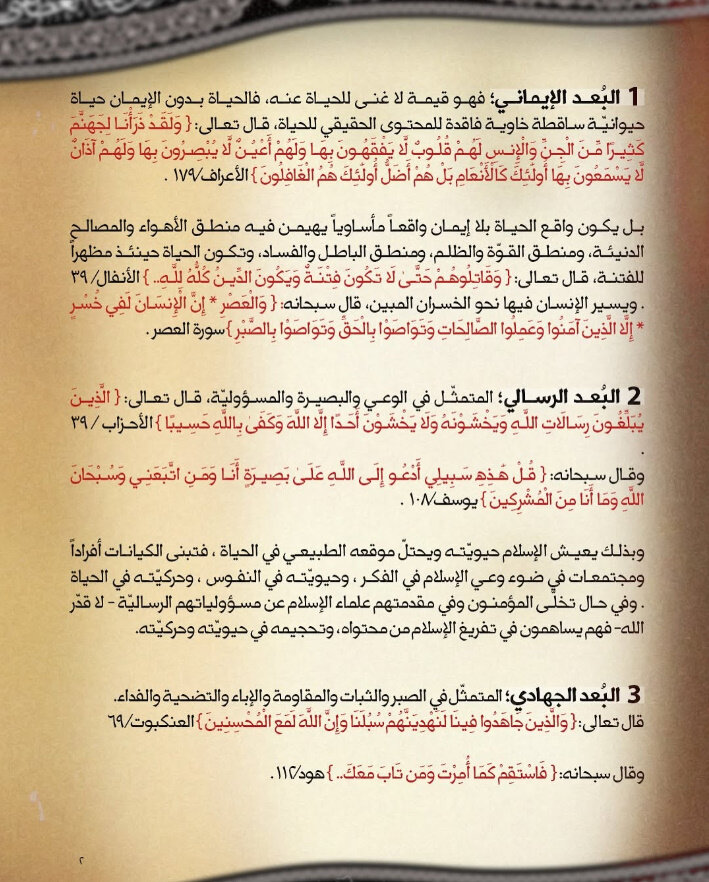 1 البُعـد الإيمانـي؛ فهـو قيمـة لا غنـى للحيـاة عنـه، فالحيـاة بـدون الإيمـان حيـاة
حيوانيّـة ساقطة خاويـة فاقدة للمحتـوى الحقيقي للحياة، قـال تعـالى: { وَلَقَـدْ ذَرَأْنَـا لِجَهَنَّـمَ
كَثِيـرًا مِّـنَ الْجِـنِّ وَالْإِنـسِ لَهُـمْ قُلُـوبٌ لَّا يَفْقَهُـونَ بِهَـا وَلَهُـمْ أَعْيُـنٌ لَّا يُبْصِـرُونَ بِهَا وَلَهُـمْ آذَانٌ
لَّا يَسْمَعُونَ بِهَا أُولَٰئِكَ كَالْأَنْعَامِ بَلْ هُمْ أَضَلُّ أُولَٰئِكَ هُمُ الْغَافِلُونَ } الأعراف/ ١٧٩ .
بـل يكـون واقـع الحيـاة بـلا إيمـان واقعـاً مأسـاوياً يهيمـن فيـه منطـق الأهـواء والمصالـح
الدنيئـة، ومنطـق القـوّة والظلـم، ومنطـق الباطـل والفساد، وتكـون الحياة حينئـذ مظهراً
للفتنـة، قـال تعـالى: { وَقَاتِلُوهُـمْ حَتَّـىٰ لَا تَكُـونَ فِتْنَـةٌ وَيَكُـونَ الدِّيـنُ كُلُّـهُ لِلَّـهِ.. } الأنفـال/ ٣٩
. ويسـير الإنسـان فيهـا نحو الخسـران المبين، قال سبحانه: { وَالْعَصْـرِ * إِنَّ الْإِنسَـانَ لَفِي خُسْـرٍ
* إِلَّا الَّذِينَ آمَنُوا وَعَمِلُوا الصَّالِحَاتِ وَتَوَاصَوْا بِالْحَقِّ وَتَوَاصَوْا بِالصَّبْرِ } سورة العصر .
2 البُعـد الرسـالي؛ المتمثّـل في الوعـي والبصيـرة والمسـؤوليّة، قـال تعـالى: { الَّذِيـنَ
يُبَلِّغُـونَ رِسَـالَاتِ اللَّـهِ وَيَخْشَـوْنَـهُ وَلَا يَخْشَـوْنَ أَحَـدًا إِلَّا اللَّهَ وَكَفَـىٰ بِاللَّهِ حَسِيبًا } الأحزاب / ٣٩
.
وقـال سـبحانه: { قُـلْ هَـٰذِهِ سَـبِيلِي أَدْعُـو إِلَـى اللَّـهِ عَلَـىٰ بَصِيـرَةٍ أَنَـا وَمَـنِ اتَّبَعَنِـي وَسُـبْحَانَ
اللَّهِ وَمَا أَنَا مِنَ الْمُشْرِكِينَ } يوسف/١٠٨ .
وبذلـك يعيـش الإسلام حيويّتـه ويحتلّ موقعه الطبيعـي في الحياة ، فتبنـى الكيانـات أفراداً
ومجتمعـات في ضـوء وعـي الإسـلام في الفكـر ، وحيويّتـه في النفـوس ، وحركيّتـه في الحيـاة
. وفي حـال تخلّـى المؤمنـون وفي مقدمتهم علمـاء الإسلام عن مسـؤولياتهم الرسـاليّة - لا قدّر
الله- فهم يساهمون في تفريغ الإسلام من محتواه، وتحجيمه في حيويّته وحركيّته.
3 البُعد الجهادي؛ المتمثّل في الصبر والثبات والمقاومة والإباء والتضحية والفداء.
قال تعالى: { وَالَّذِينَ جَاهَدُوا فِينَا لَنَهْدِيَنَّهُمْ سُبُلَنَا وَإِنَّ اللَّهَ لَمَعَ الْمُحْسِنِينَ } العنكبوت/٦٩
وقال سبحانه: { فَاسْتَقِمْ كَمَا أُمِرْتَ وَمَن تَابَ مَعَكَ.. } هود/١١٢ .
٢